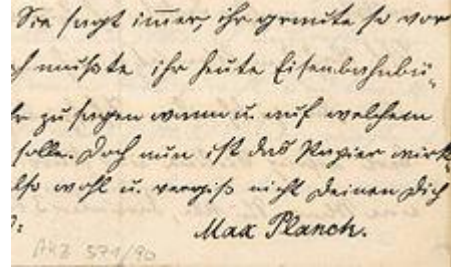 Sie sagt immer, ihr graute so vor
ich mußte ihr heute Eisenbahnbü-
zu sagen wann u. auf welchem
solle. Doch nun ist das Papier wirk-
also wohl u. vergiß nicht Deinen Dich
Max Planck.
AHZ 571/90